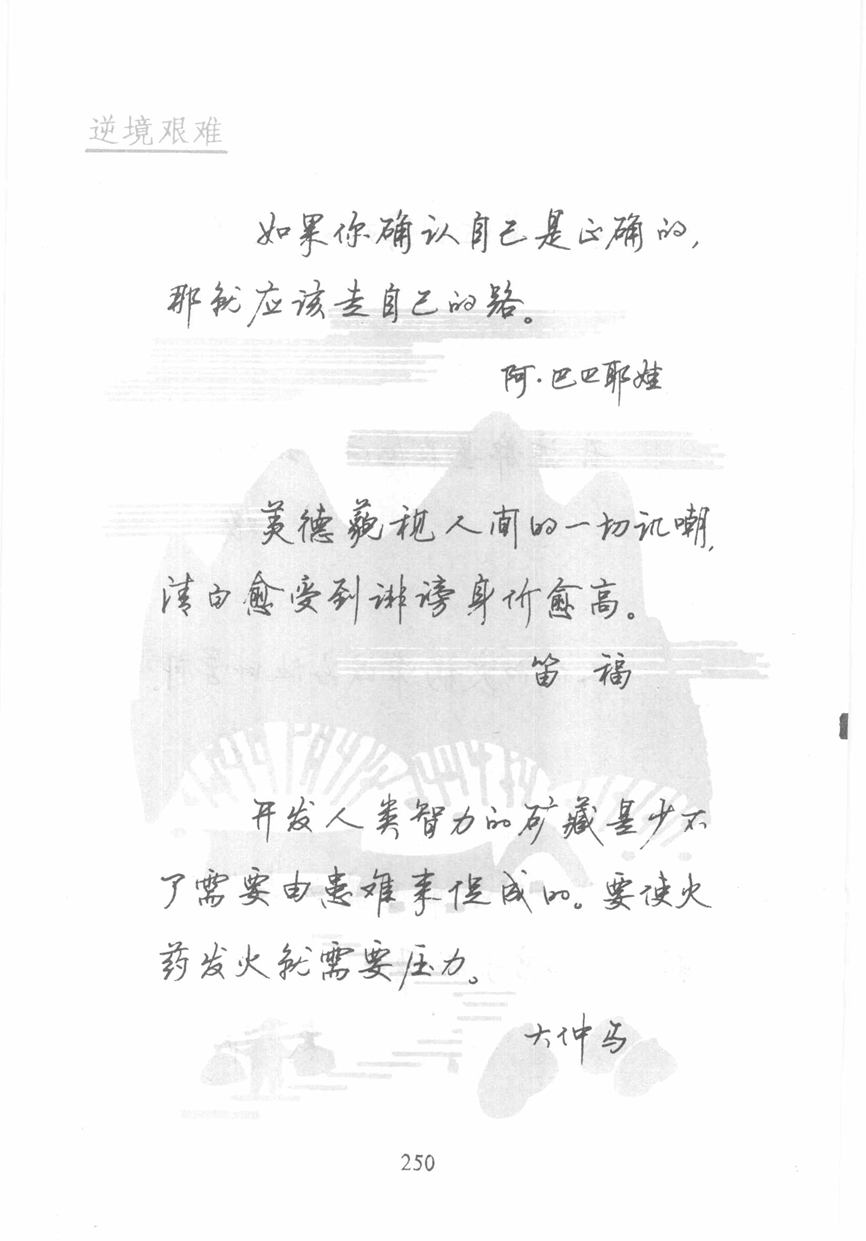 逆境艰难
如果你确认自己是正确的,
那就应该走自己的路。
阿·巴巴耶娃
美德藐视人间的一切讥嘲,
清白愈受到诽谤身价愈高。
笛福
开发人类智力的矿藏是少不
了需要由患难来促成的。要使火
药发火就需要压力。
大仲马
250